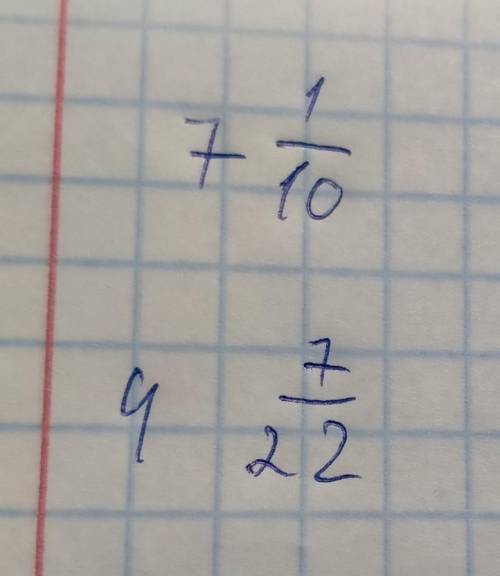 7 1/10
9 7/22